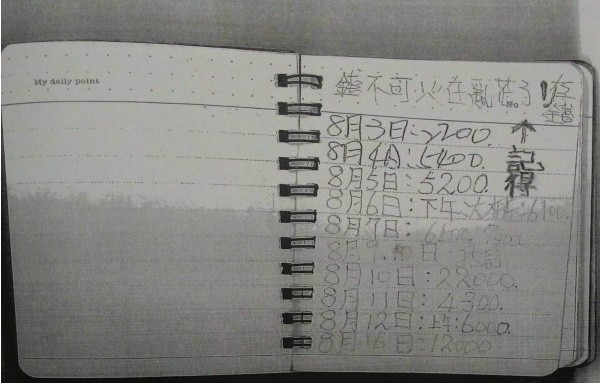 My daily point
錢不可火在亂花了!存
No. 錢
8月3日:7200. ↑
8月4日:5400. 記
8月5日:5200. 得
8月6日:下午 6100.
8月7日:
日
8月10日:22000.
8月11日:4300.
8月12日:6000.
8月16日:12000